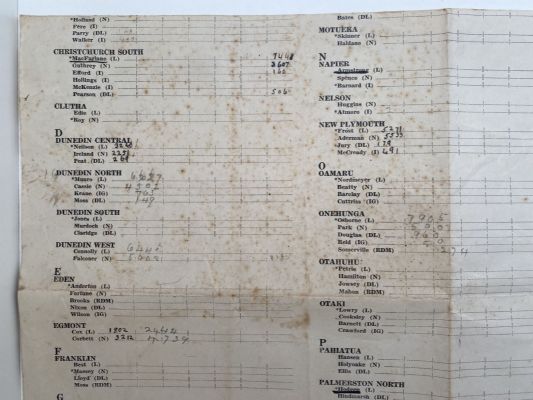 *Holland (N)
Fere (I)
Parry (DL)
Walker (I)
CHRISTCHURCH SOUTH
*MacFarlane (L) 7448
Guthrey (N) 3607
Efford (I) 160
Hollings (I)
McKenzie (I)
Pearson (DL) 506
CLUTHA
Edie (L)
*Roy (N)
D
DUNEDIN CENTRAL
*Neilson (L)
Ireland (N)
Peat (DL)
DUNEDIN NORTH
*Munro (L)
Cassie (N)
Kease (IG)
Moss (DL)
DUNEDIN SOUTH
*Jones (L)
Murdoch (N)
Claridge (DL)
DUNEDIN WEST
Connolly (L)
Falconer (N)
E
EDEN
*Anderton (L)
Fortune (N)
Brooks (RDM)
Nixon (DL)
Wilson (IG)
EGMONT
Cox (L) 1802
Corbett (N) 3212
F
FRANKLIN
Best (L)
*Massey (N)
Lloyd (DL)
Moss (RDM)
G
Bates (DL)
MOTUEKA
*Skinner (L)
Haldane (N)
N
NAPIER
Armstrong (L)
Spence (N)
*Barnard (I)
NELSON
Huggins (N)
*Atmore (I)
NEW PLYMOUTH
*Frost (L) 5271
Aderman (N) 5535
Jury (DL)
McCready (I) 491
O
OAMARU
*Nordmeyer (L)
Beatty (N)
Barclay (DL)
Cuttriss (IG)
ONEHUNGA
*Osborne (L)
Park (N)
Douglas (DL)
Reid (IG)
Somerville (RDM) 274
OTAHUHU
*Petrie (L)
Hamilton (N)
Jowsey (DL)
Mahon (RDM)
OTAKI
*Lowry (L)
Cooksley (N)
Barnett (DL)
Crawford (IG)
P
PAHIATUA
Hansen (L)
*Holyoake (N)
Ellis (DL)
PALMERSTON NORTH
*Hodgen (L)
Hindmarsh (DL)